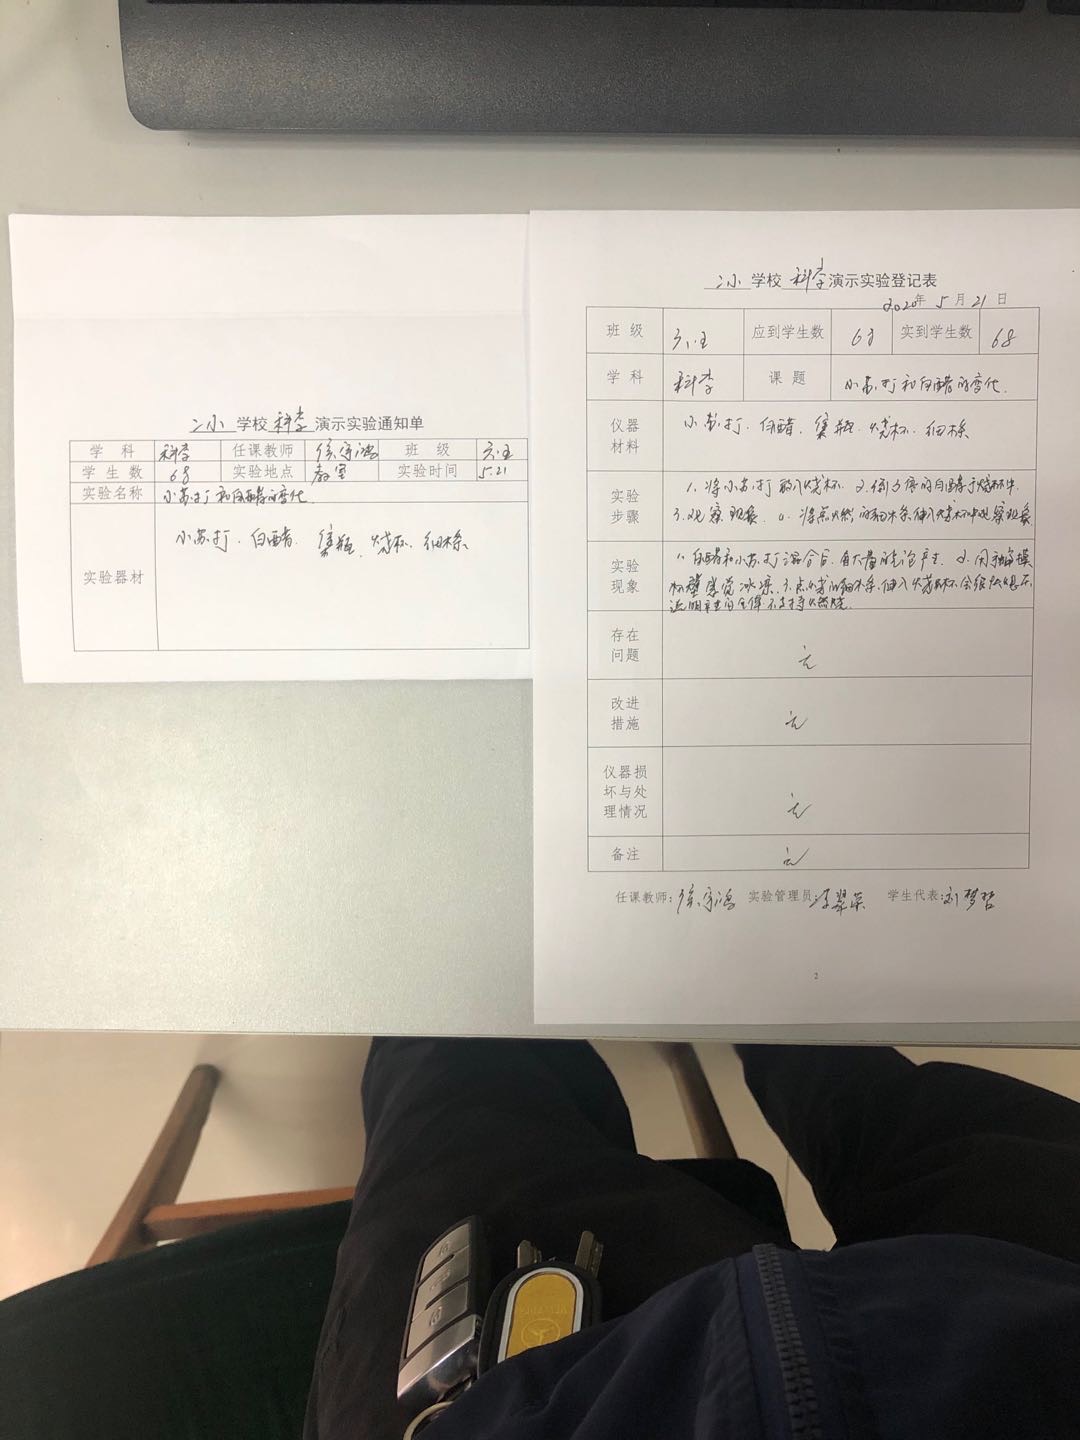 二小 学校 科学 演示实验通知单
学 科 科学 任课教师 徐宇鸿 班 级 六.五
学 生 数 68 实验地点 教室 实验时间 5.21
实验名称 小苏打和白醋的变化
实验器材 小苏打. 白醋. 集瓶. 烧杯. 细木条
二小 学校 科学 演示实验登记表
2020年 5月 21日
班 级 六.五 应到学生数 68 实到学生数 68
学 科 科学 课 题 小苏打和白醋的变化.
仪器
材料
小苏打. 白醋. 集瓶. 烧杯. 细木条
实验
步骤
1. 将小苏打放入烧杯. 2. 倒3倍的白醋于烧杯中.
3. 观察现象. 4. 将点燃的细木条伸入烧杯中观察现象
实验
现象
1. 白醋和小苏打混合后, 有大量的气泡产生. 2. 用手触摸
杯壁感觉冰凉. 3. 点燃的细木条伸入烧杯
产生的气体不支持燃烧.
存在
问题
无
改进
措施
无
仪器损
坏与处
理情况
无
备注 无
任课教师: 徐宇鸿 实验管理员: 翠英 学生代表: 刘梦哲
2